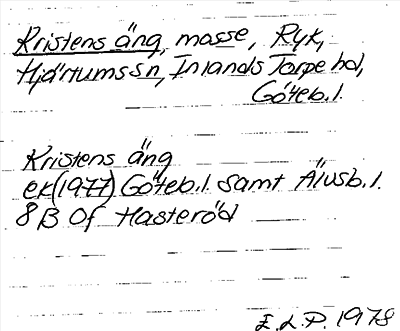 Kristens äng, mosse, Ryk,
Hjärtums sn, Inlands Torpe hd,
Göteb. l.
Kristens äng
ek (1977) Göteb. l. samt Älvsb. l.
8 B 0f Hasteröd
E. L. P. 1978